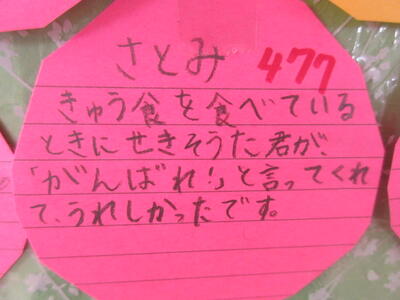 さとみ 477
きゅう食を食べている
ときにせきそうた君が、
「がんばれ!」と言ってくれ
て、うれしかったです。